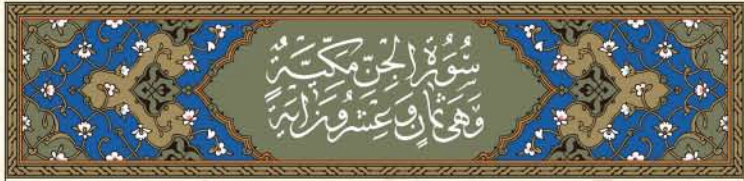 سُورَةُ الْجِنِّ مَكِّيَّةٌ
وَهِيَ ثَمَانٍ وَعِشْرُونَ اٰيَةً